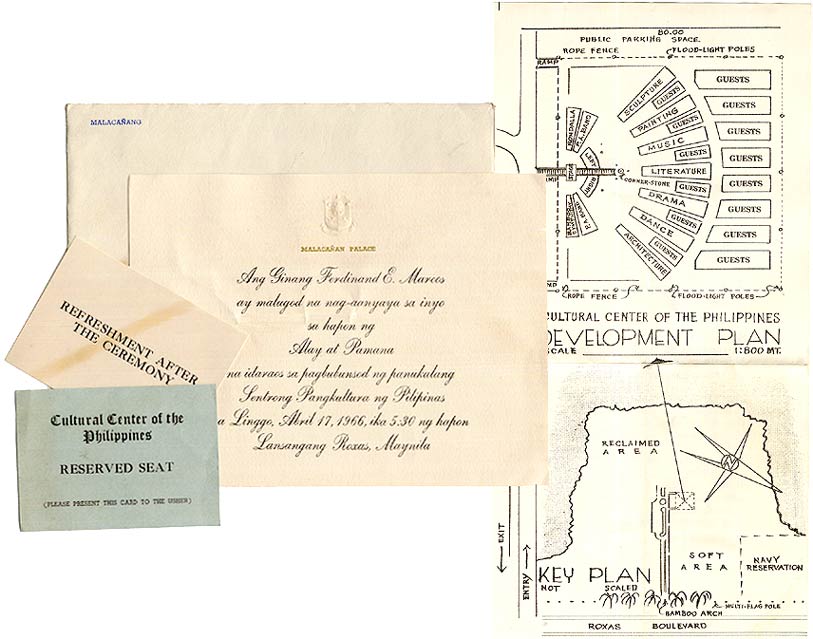 MALACAÑANG
MALACAÑAN PALACE
Ang Ginang Ferdinand E. Marcos
ay malugod na nag-aanyaya sa inyo
sa hapon ng
Alay at Pamana
na idaraos sa pagbubunsod ng panukalang
Sentrong Pangkultura ng Pilipinas
a Linggo, Abril 17, 1966, ika 5:30 ng hapon
Lansangang Roxas, Maynila
REFRESHMENT AFTER
THE CEREMONY
Cultural Center of the
Philippines
RESERVED SEAT
(PLEASE PRESENT THIS CARD TO THE USHER)
80.00
PUBLIC PARKING SPACE
ROPE FENCE
FLOOD-LIGHT POLES
RAMP
SCULPTURE
GUESTS
PAINTING
GUESTS
MUSIC
GUESTS
LITERATURE
GUESTS
DRAMA
GUESTS
DANCE
GUESTS
ARCHITECTURE
GUESTS
GUESTS
GUESTS
GUESTS
GUESTS
GUESTS
GUESTS
GUESTS
RONDALLA
LEFT
RIGHT
CORNER-STONE
MP
ROPE FENCE
FLOOD-LIGHT POLES
CULTURAL CENTER OF THE PHILIPPINES
DEVELOPMENT PLAN
SCALE
1:800 MT.
RECLAIMED
AREA
N
SOFT
AREA
NAVY
RESERVATION
KEY PLAN
NOT SCALED
EXIT
ENTRY
MULTI-FLAG POLE
BAMBOO ARCH
ROXAS BOULEVARD